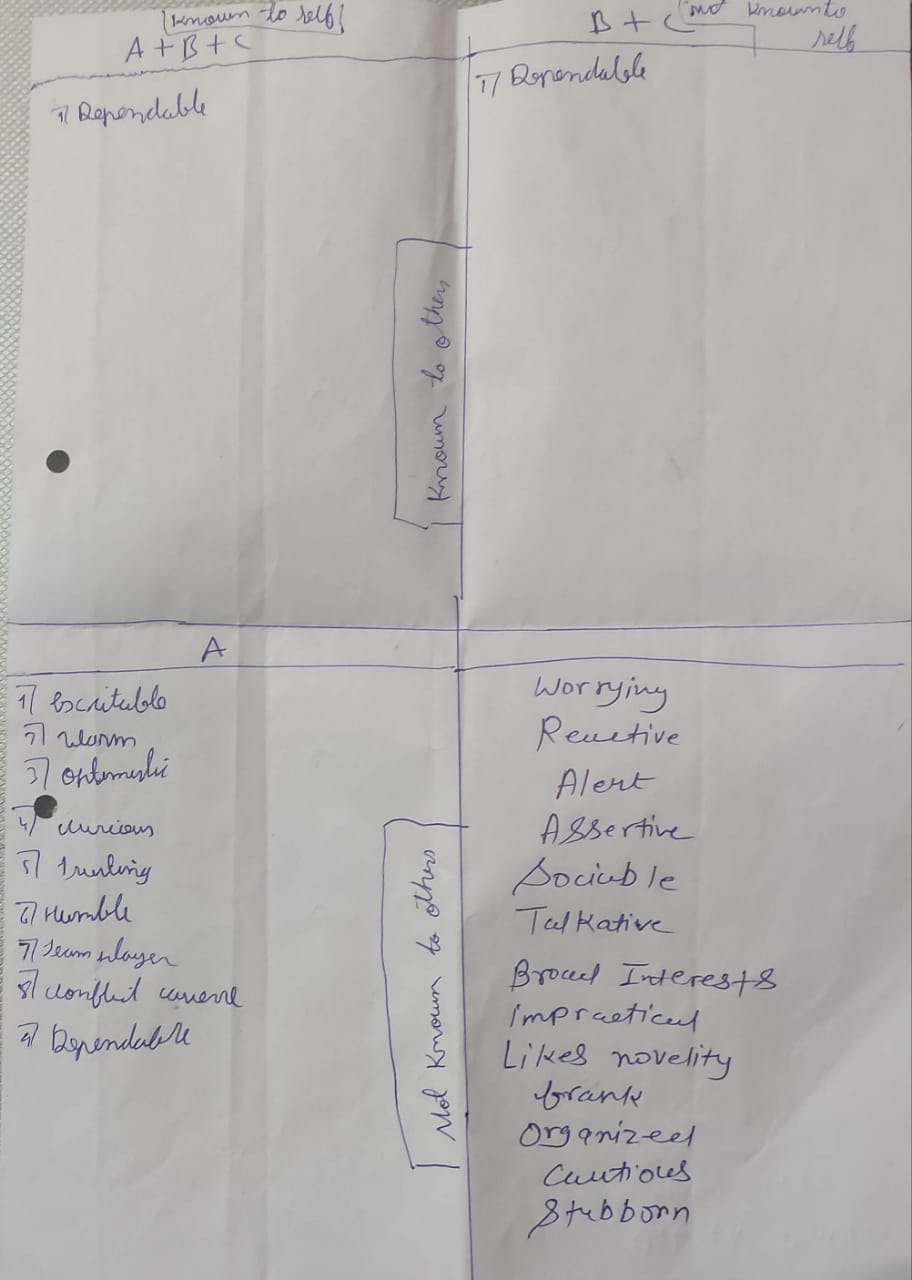 Known to self
A + B + C
1) Dependable
B + C
not known to
self
1) Dependable
Known to others
A
1) Excitable
2) Warm
3) Optimestic
4) Curious
5) Trusting
6) Humble
7) Team player
8) Conflict averse
9) Dependable
Not Known to others
Worrying
Reactive
Alert
Assertive
Sociable
Talkative
Broad Interests
impractical
Likes novelity
frank
Organized
Cautious
Stubborn